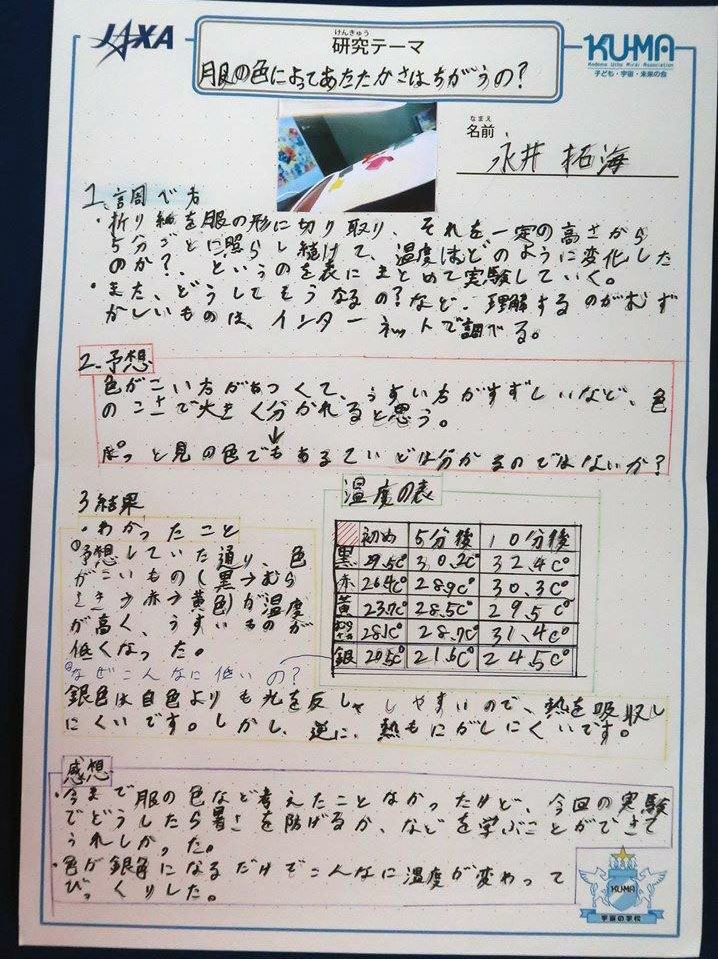 JAXA
けんきゅう
研究テーマ
服の色によってあたたかさはちがうの?
KU-MA
Kodomo Uchu Mirai Association
子ども・宇宙・未来の会
なまえ
名前
永井 拓海
1.調べ方
・折り紙を服の形に切り取り、それを一定の高さから
5分ごとに照らし続けて、温度はどのように変化した
のか?、というのを表にまとめて実験していく。
・また、どうしてそうなるの?など、理解するのがむず
かしいものは、インターネットで調べる。
2.予想
色がこい方があつくて、うすい方がすずしいなど、色
のこさで大きく分かれると思う。
↓
ぱっと見の色でもあるていどは分かるのではないか?
3結果
・わかったこと
①予想していた通り、色
がこいもの(黒→むら
さき→赤→黄色)が温度
が高く、うすいものが
低くなった。
温度の表
初め 5分後 10分後
黒 29.5C° 30.2C° 32.4C°
赤 26.4C° 28.9C° 30.3C°
黄 23.7C° 28.5C° 29.5C°
むらさき 28.1C° 28.7C° 31.4C°
銀 20.5C° 21.6C° 24.5C°
②なぜこんなに低いの?
銀色は白色よりも光を反しゃしやすいので、熱を吸収し
にくいです。しかし、逆に、熱もにがしにくいです。
感想
・今まで服の色など考えたことなかったけど、今回の実験
でどうしたら暑さを防げるか、などを学ぶことができて
うれしかった。
・色が銀色になるだけでこんなに温度が変わって
びっくりした。
KU-MA
宇宙の学校